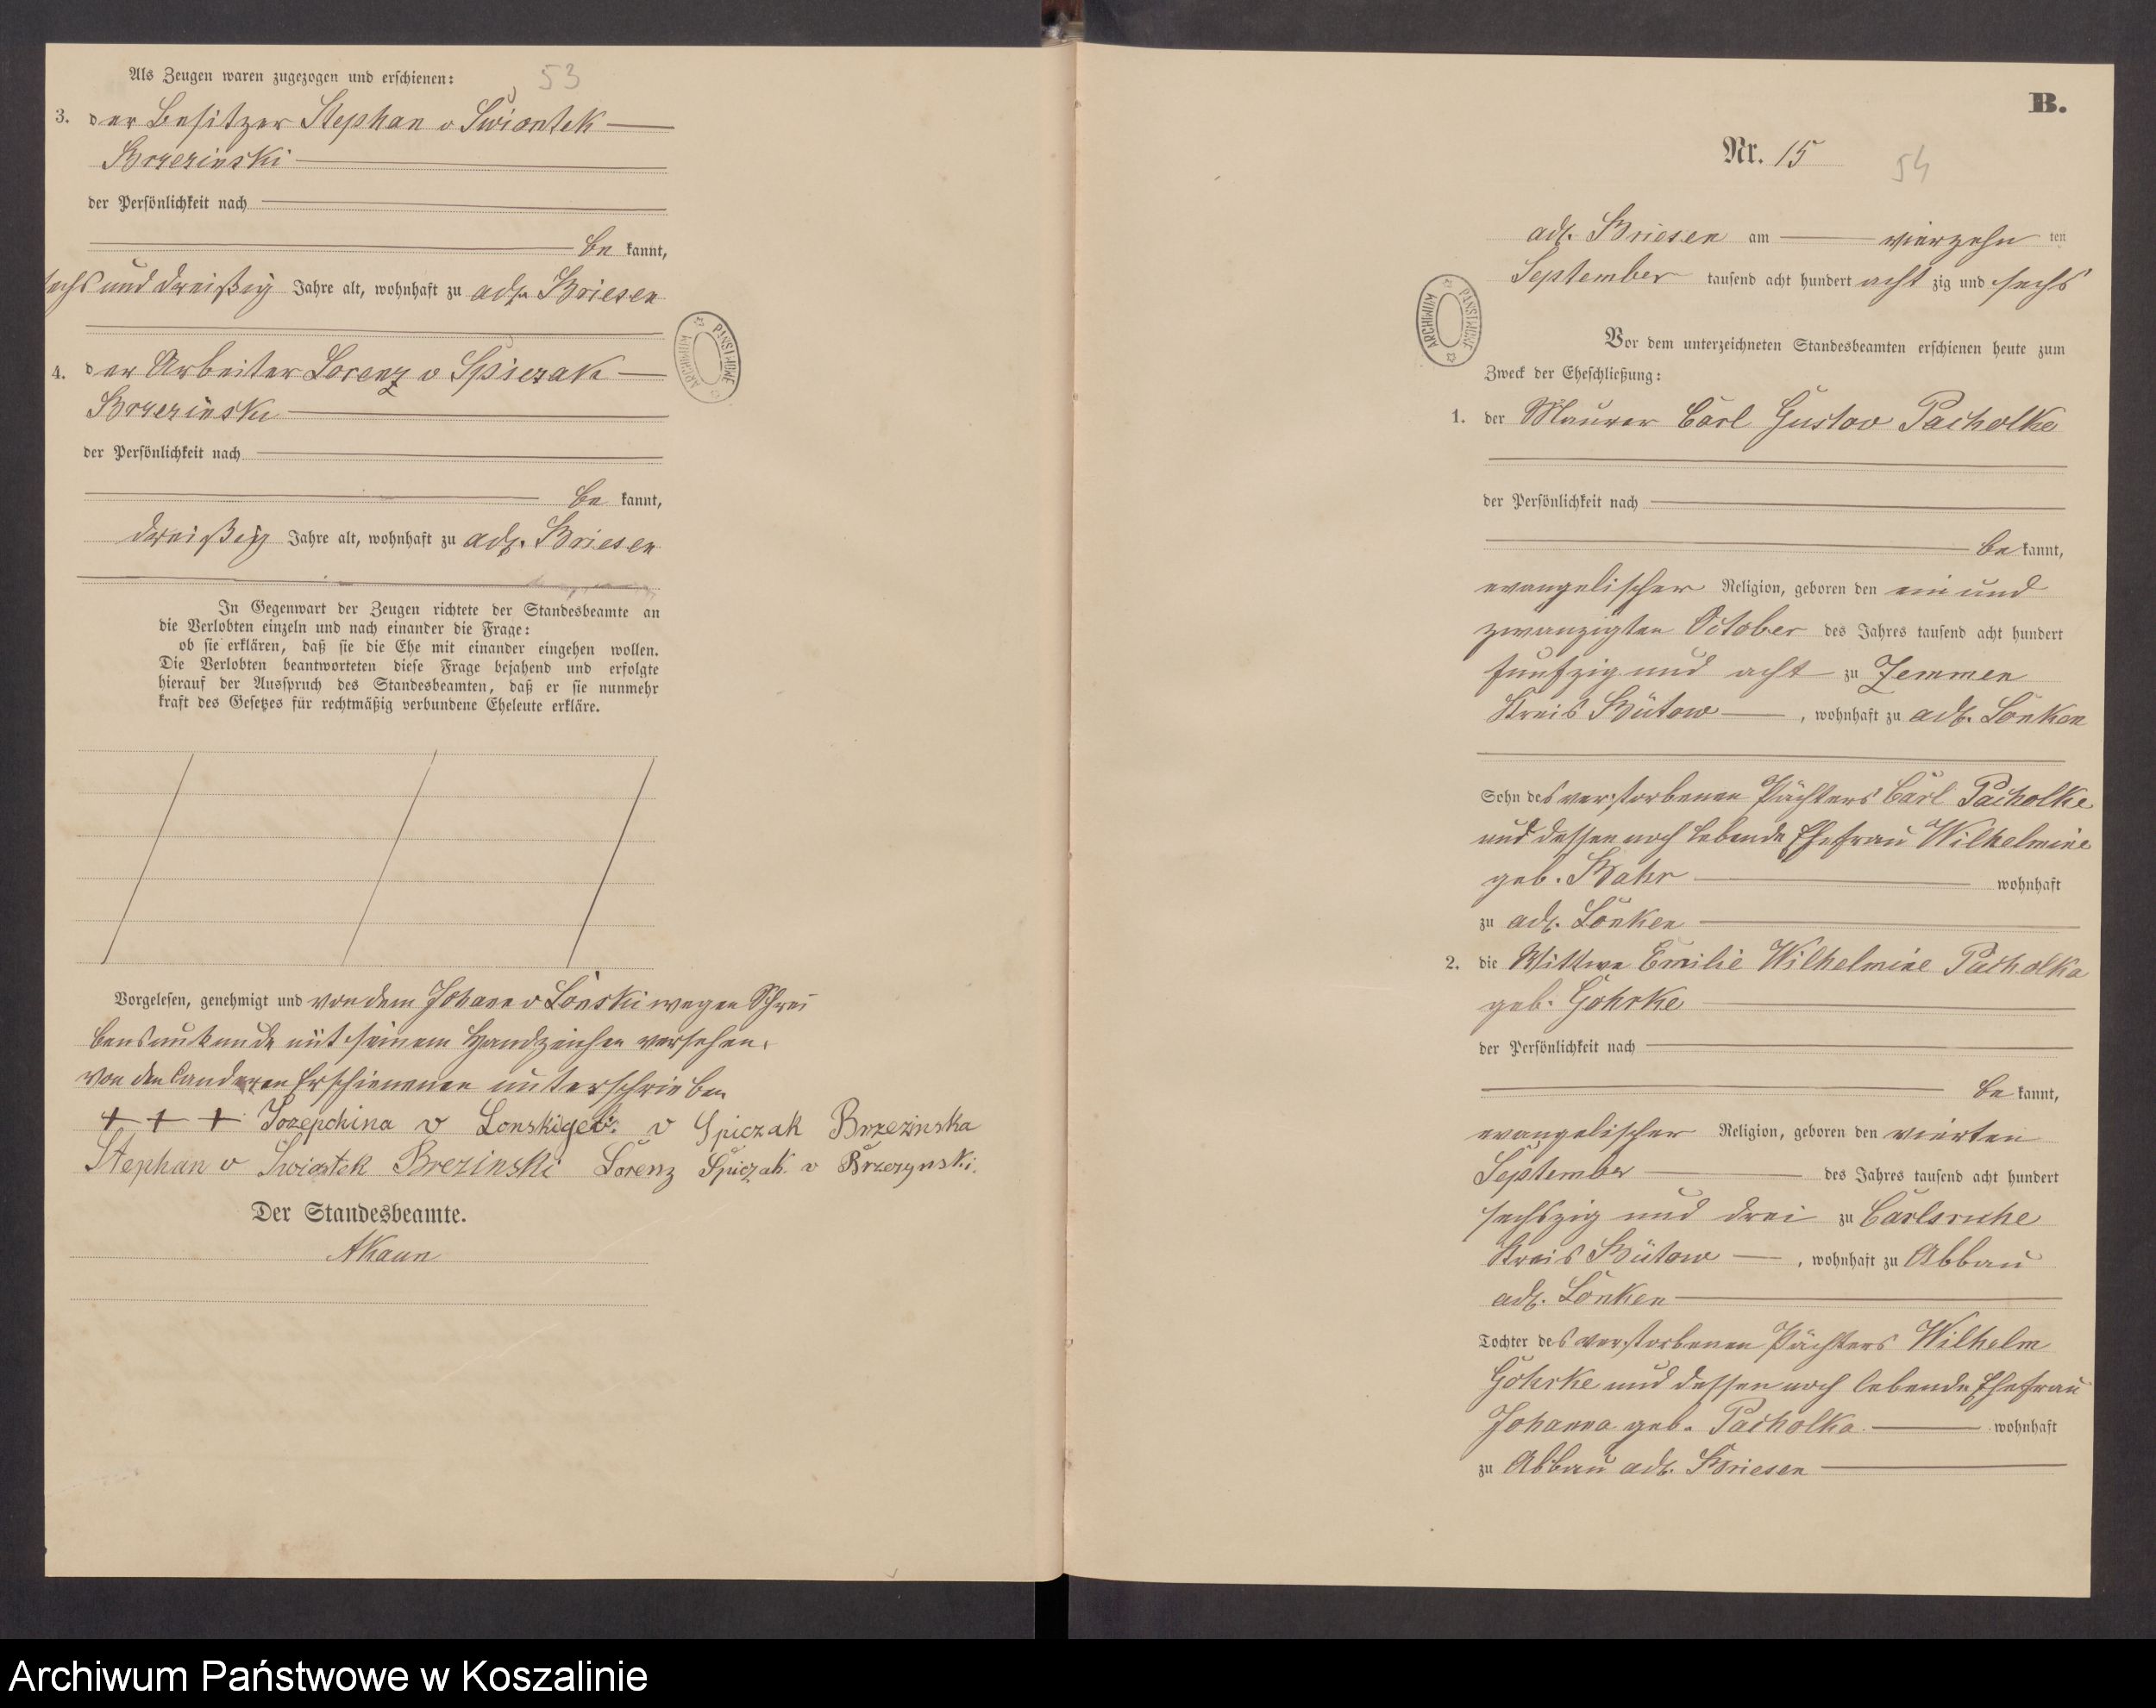 Als Zeugen waren zugezogen und erschienen:
53
3. der Besitzer Stephan v Swiontek
Brzezinski
der Persönlichkeit nach
be kannt,
sechs und dreißig Jahre alt, wohnhaft zu adl. Briesen
4. der Arbeiter Lorenz v Spiczak
Brzezinski
der Persönlichkeit nach
be kannt,
dreißig Jahre alt, wohnhaft zu adl. Briesen
In Gegenwart der Zeugen richtete der Standesbeamte an
die Verlobten einzeln und nach einander die Frage:
ob sie erklären, daß sie die Ehe mit einander eingehen wollen.
Die Verlobten beantworteten diese Frage bejahend und erfolgte
hierauf der Ausspruch des Standesbeamten, daß er sie nunmehr
kraft des Gesetzes für rechtmäßig verbundene Eheleute erkläre.
Vorgelesen, genehmigt und von dem Johann v Lonski wegen Schrei
bensunkunde mit seinem Handzeichen versehen,
von den anderen Erschienenen unterschrieben
+ + + Jozephina v Lonski geb. v Spiczak Brzezinska
Stephan v Swiontek Brezinski Lorenz Spiczak v Brzezynski.
Der Standesbeamte.
AKaun
ARCHIWUM PAŃSTWOWE
B.
Nr. 15
54
adl. Briesen am vierzehn ten
September tausend acht hundert acht zig und sechs
ARCHIWUM PAŃSTWOWE
Vor dem unterzeichneten Standesbeamten erschienen heute zum
Zweck der Eheschließung:
1. der Maurer Carl Gustav Pacholke
der Persönlichkeit nach
be kannt,
evangelischer Religion, geboren den ein und
zwanzigten October des Jahres tausend acht hundert
funfzig und acht zu Zemmen
Kreis Bütow, wohnhaft zu adl. Lonken
Sohn des verstorbenen Pächters Carl Pacholke
und dessen noch lebende Ehefrau Wilhelmine
geb. Bahr wohnhaft
zu adl. Lonken
2. die Wittwe Emilie Wilhelmine Pacholka
geb. Gohrke
der Persönlichkeit nach
be kannt,
evangelischer Religion, geboren den vierten
September des Jahres tausend acht hundert
sechszig und drei zu Carlsruhe
Kreis Bütow, wohnhaft zu Abbau
adl. Lonken
Tochter des verstorbenen Pächters Wilhelm
Gohrke und dessen noch lebende Ehefrau
Johanna geb. Pacholka wohnhaft
zu Abbau adl. Briesen
Archiwum Państwowe w Koszalinie